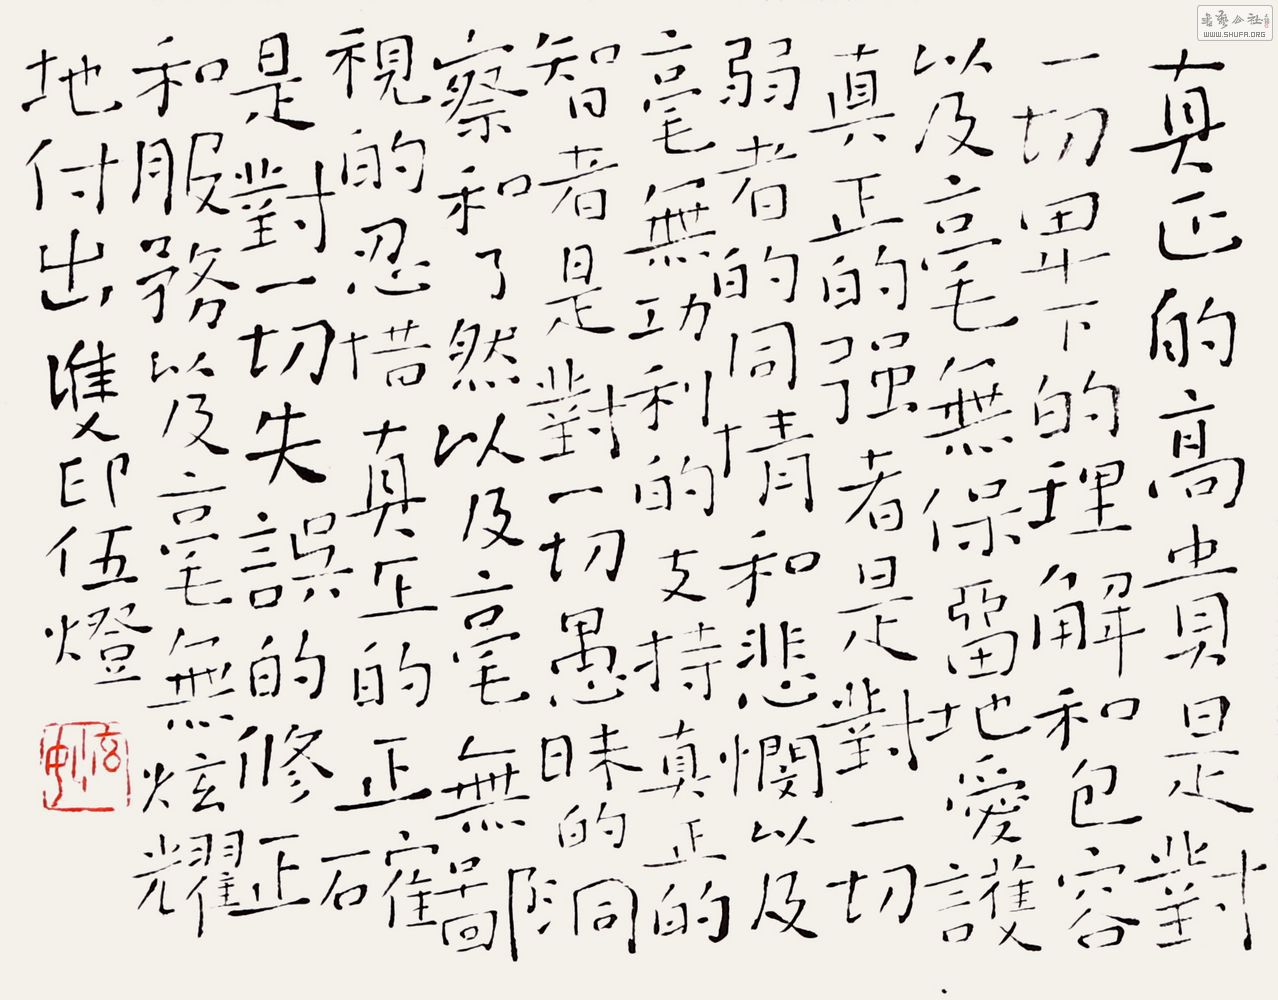 真正的高貴是對
一切卑下的理解和包容
以及毫無保留地愛護
真正的强者是對一切
弱者的同情和悲憫以及
毫無功利的支持真正的
智者是對一切愚昧的洞
察和了然以及毫無鄙
視的忍惜真正的正確
是對一切失誤的修正
和服務以及毫無炫耀
地付出雙印伍燈
書藝公社
WWW.SHUFA.ORG